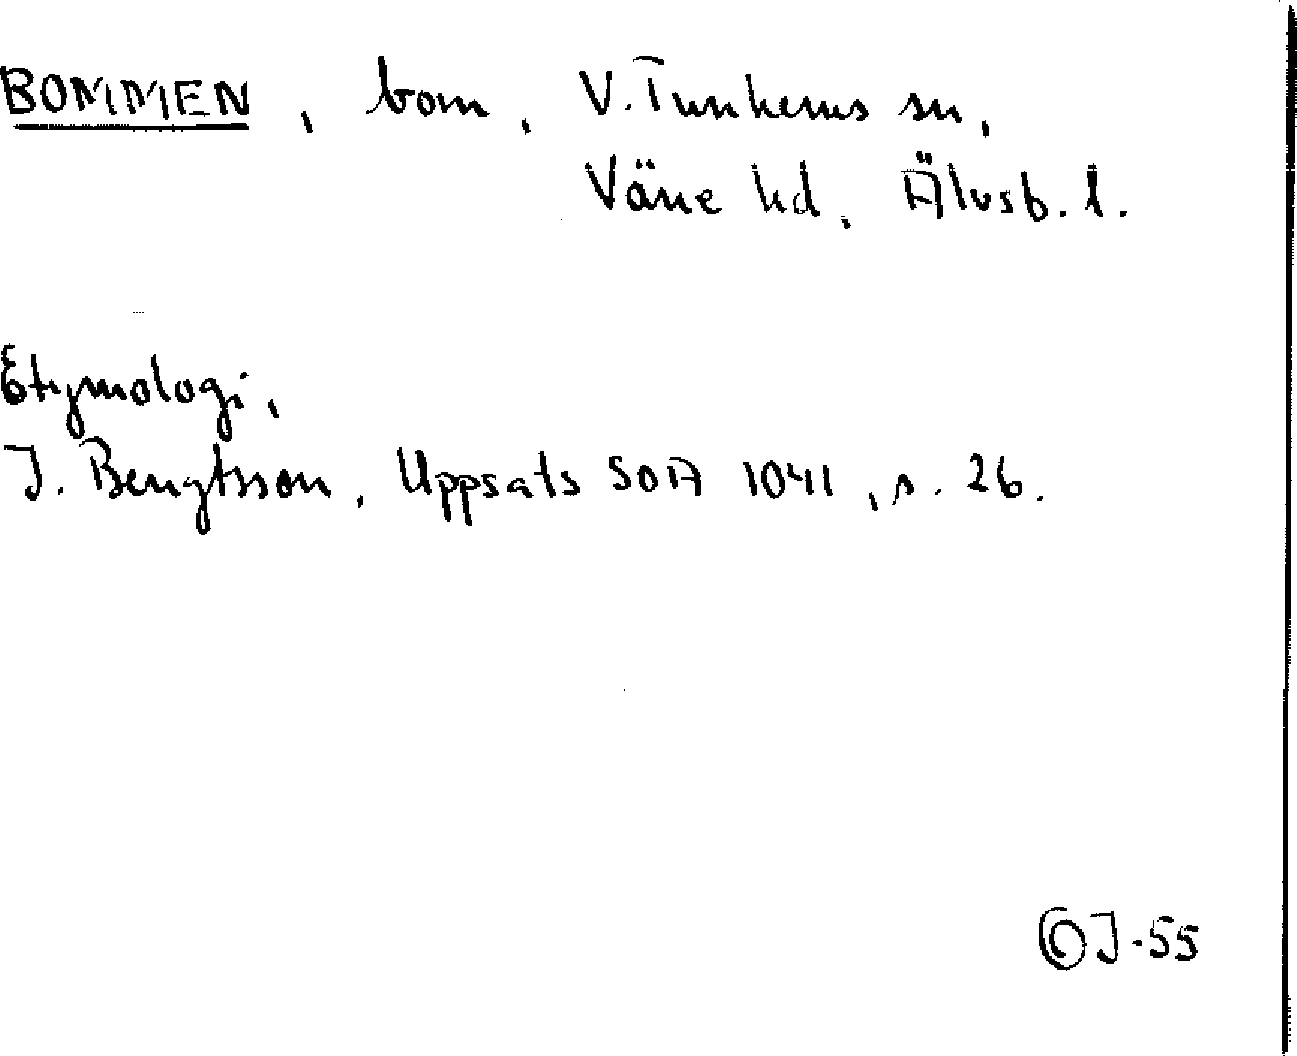 BOMMEN, bom, V. Tunhems sn,
Väne hd, Älvsb. l.
Etymologi,
J. Bengtsson, Uppsats SOA 1041, s. 26.
J-55